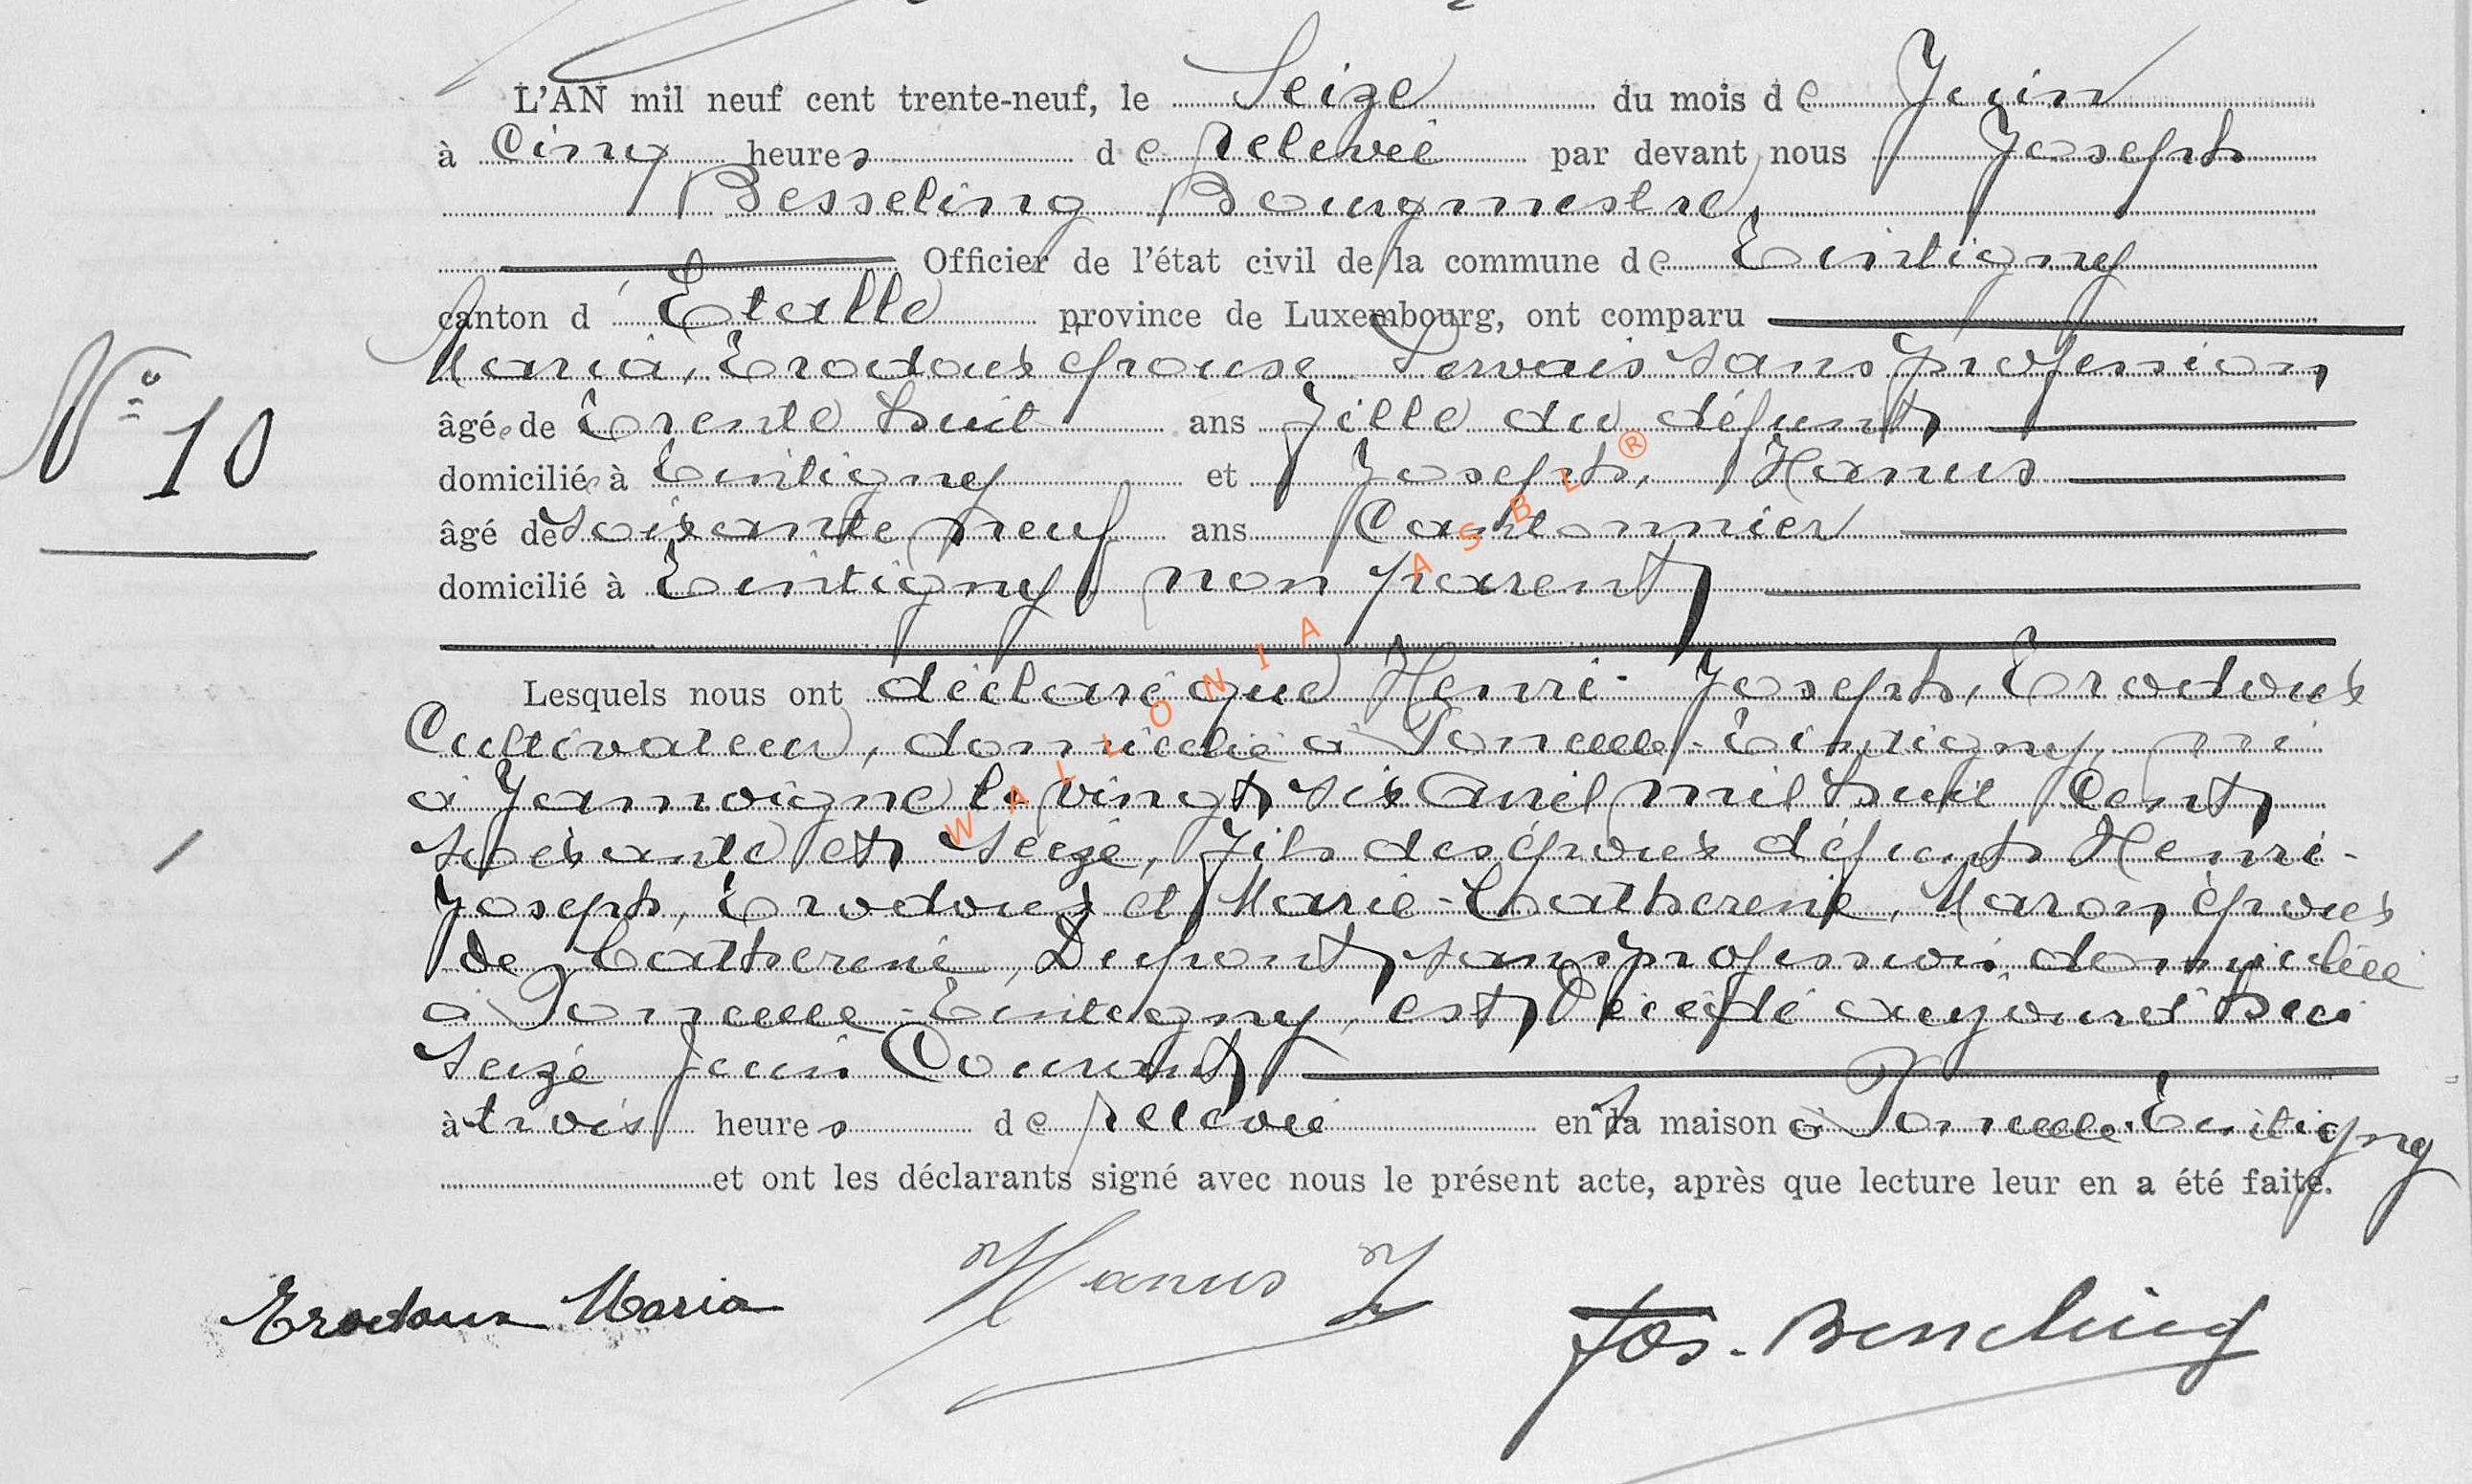 L'AN mil neuf cent trente-neuf, le Seize du mois de Juin
à Cinq heures de relevée par devant nous Joseph
Besseling Bourgmestre,
Officier de l'état civil de la commune de Tintigny
canton d'Etalle province de Luxembourg, ont comparu
Maria, Trodoux épouse Servais sans profession,
âgée de Trente huit ans fille du défunt,
domiciliée à Tintigny et Joseph, Hanus
N° 10
âgé de soixante neuf ans Cantonnier
domicilié à Tintigny non parent,
Lesquels nous ont déclaré que Henri-Joseph, Trodoux
Cultivateur, domicilié à Poncelle-Tintigny, né
à Jamoigne le vingt, six Avril mil huit Cent,
soixante et, seize, fils des époux défunts Henri-
Joseph, Trodoux et Marie-Catherine, Maron, époux
de Catherine, Dupont, sans profession, domiciliée
à Poncelle-Tintigny, est, Décédé aujourd'hui
seize Juin Courant,
à trois heures de relevée en sa maison à Poncelle-Tintigny
et ont les déclarants signé avec nous le présent acte, après que lecture leur en a été faite.
Trodoux Maria Hanus J Jos. Besseling
WALLONIA ASBL ®